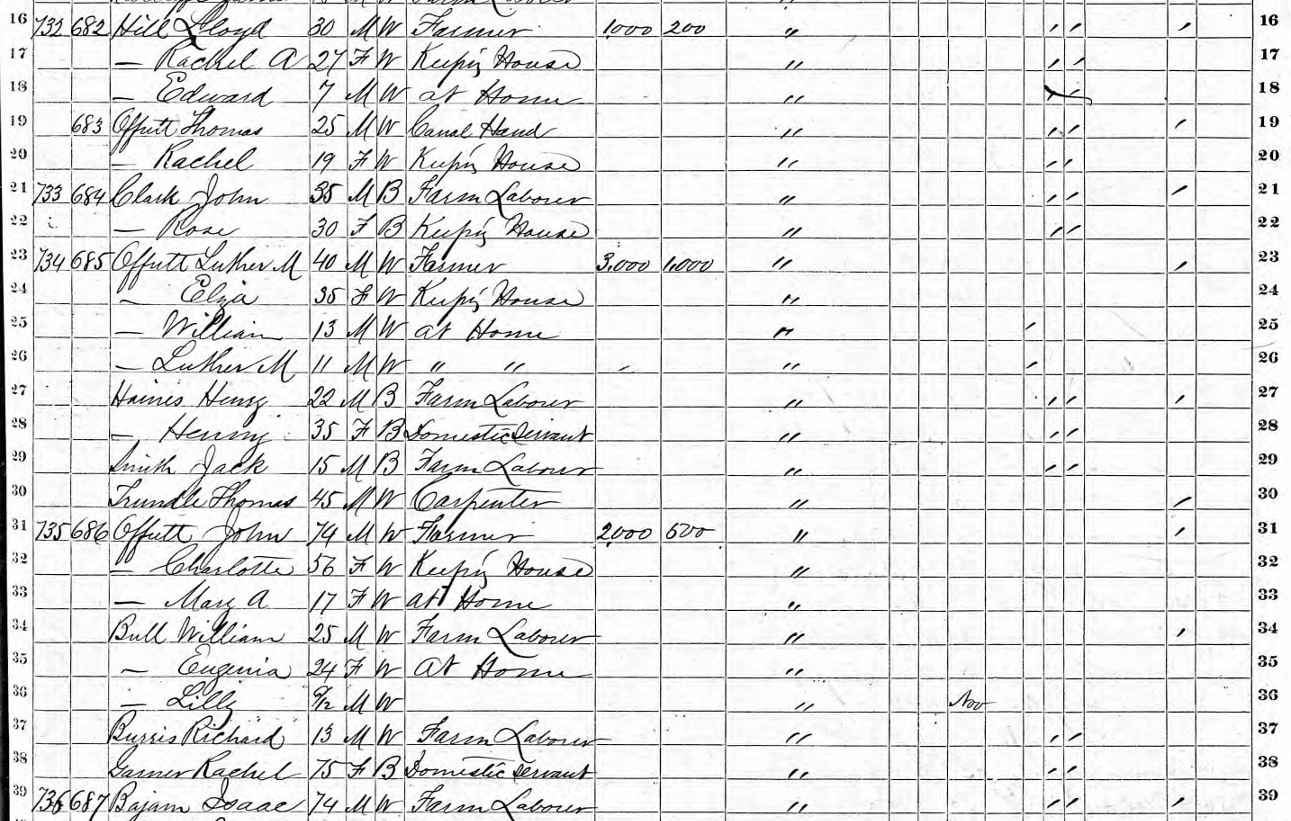 16 732 682 Hill Lloyd 30 M W Farmer 1,000 200 " 16
17 — Rachel A 27 F W Keep'g House " 17
18 — Edward 7 M W at Home " 18
19 683 Offutt Thomas 25 M W Canal Hand " 19
20 — Rachel 19 F W Keep'g House " 20
21 733 684 Clark John 35 M B Farm Laborer " 21
22 — Rose 30 F B Keep'g House " 22
23 734 685 Offutt Luther M 40 M W Farmer 3,000 1,000 " 23
24 — Eliza 35 F W Keep'g House " 24
25 — William 13 M W at Home " 25
26 — Luther M 11 M W " " " 26
27 Haines Henry 22 M B Farm Laborer " 27
28 — Henny 35 F B Domestic Servant " 28
29 Smith Jack 15 M B Farm Laborer " 29
30 Trundle Thomas 45 M W Carpenter " 30
31 735 686 Offutt John 74 M W Farmer 2,000 500 " 31
32 — Charlotte 56 F W Keep'g House " 32
33 — Mary A 17 F W at Home " 33
34 Bull William 25 M W Farm Laborer " 34
35 — Eugenia 24 F W At Home " 35
36 — Lilly 9/12 M W " Nov 36
37 Burris Richard 13 M W Farm Laborer " 37
38 Garner Rachel 75 F B Domestic Servant " 38
39 736 687 Isaac 74 M W Farm Laborer " 39